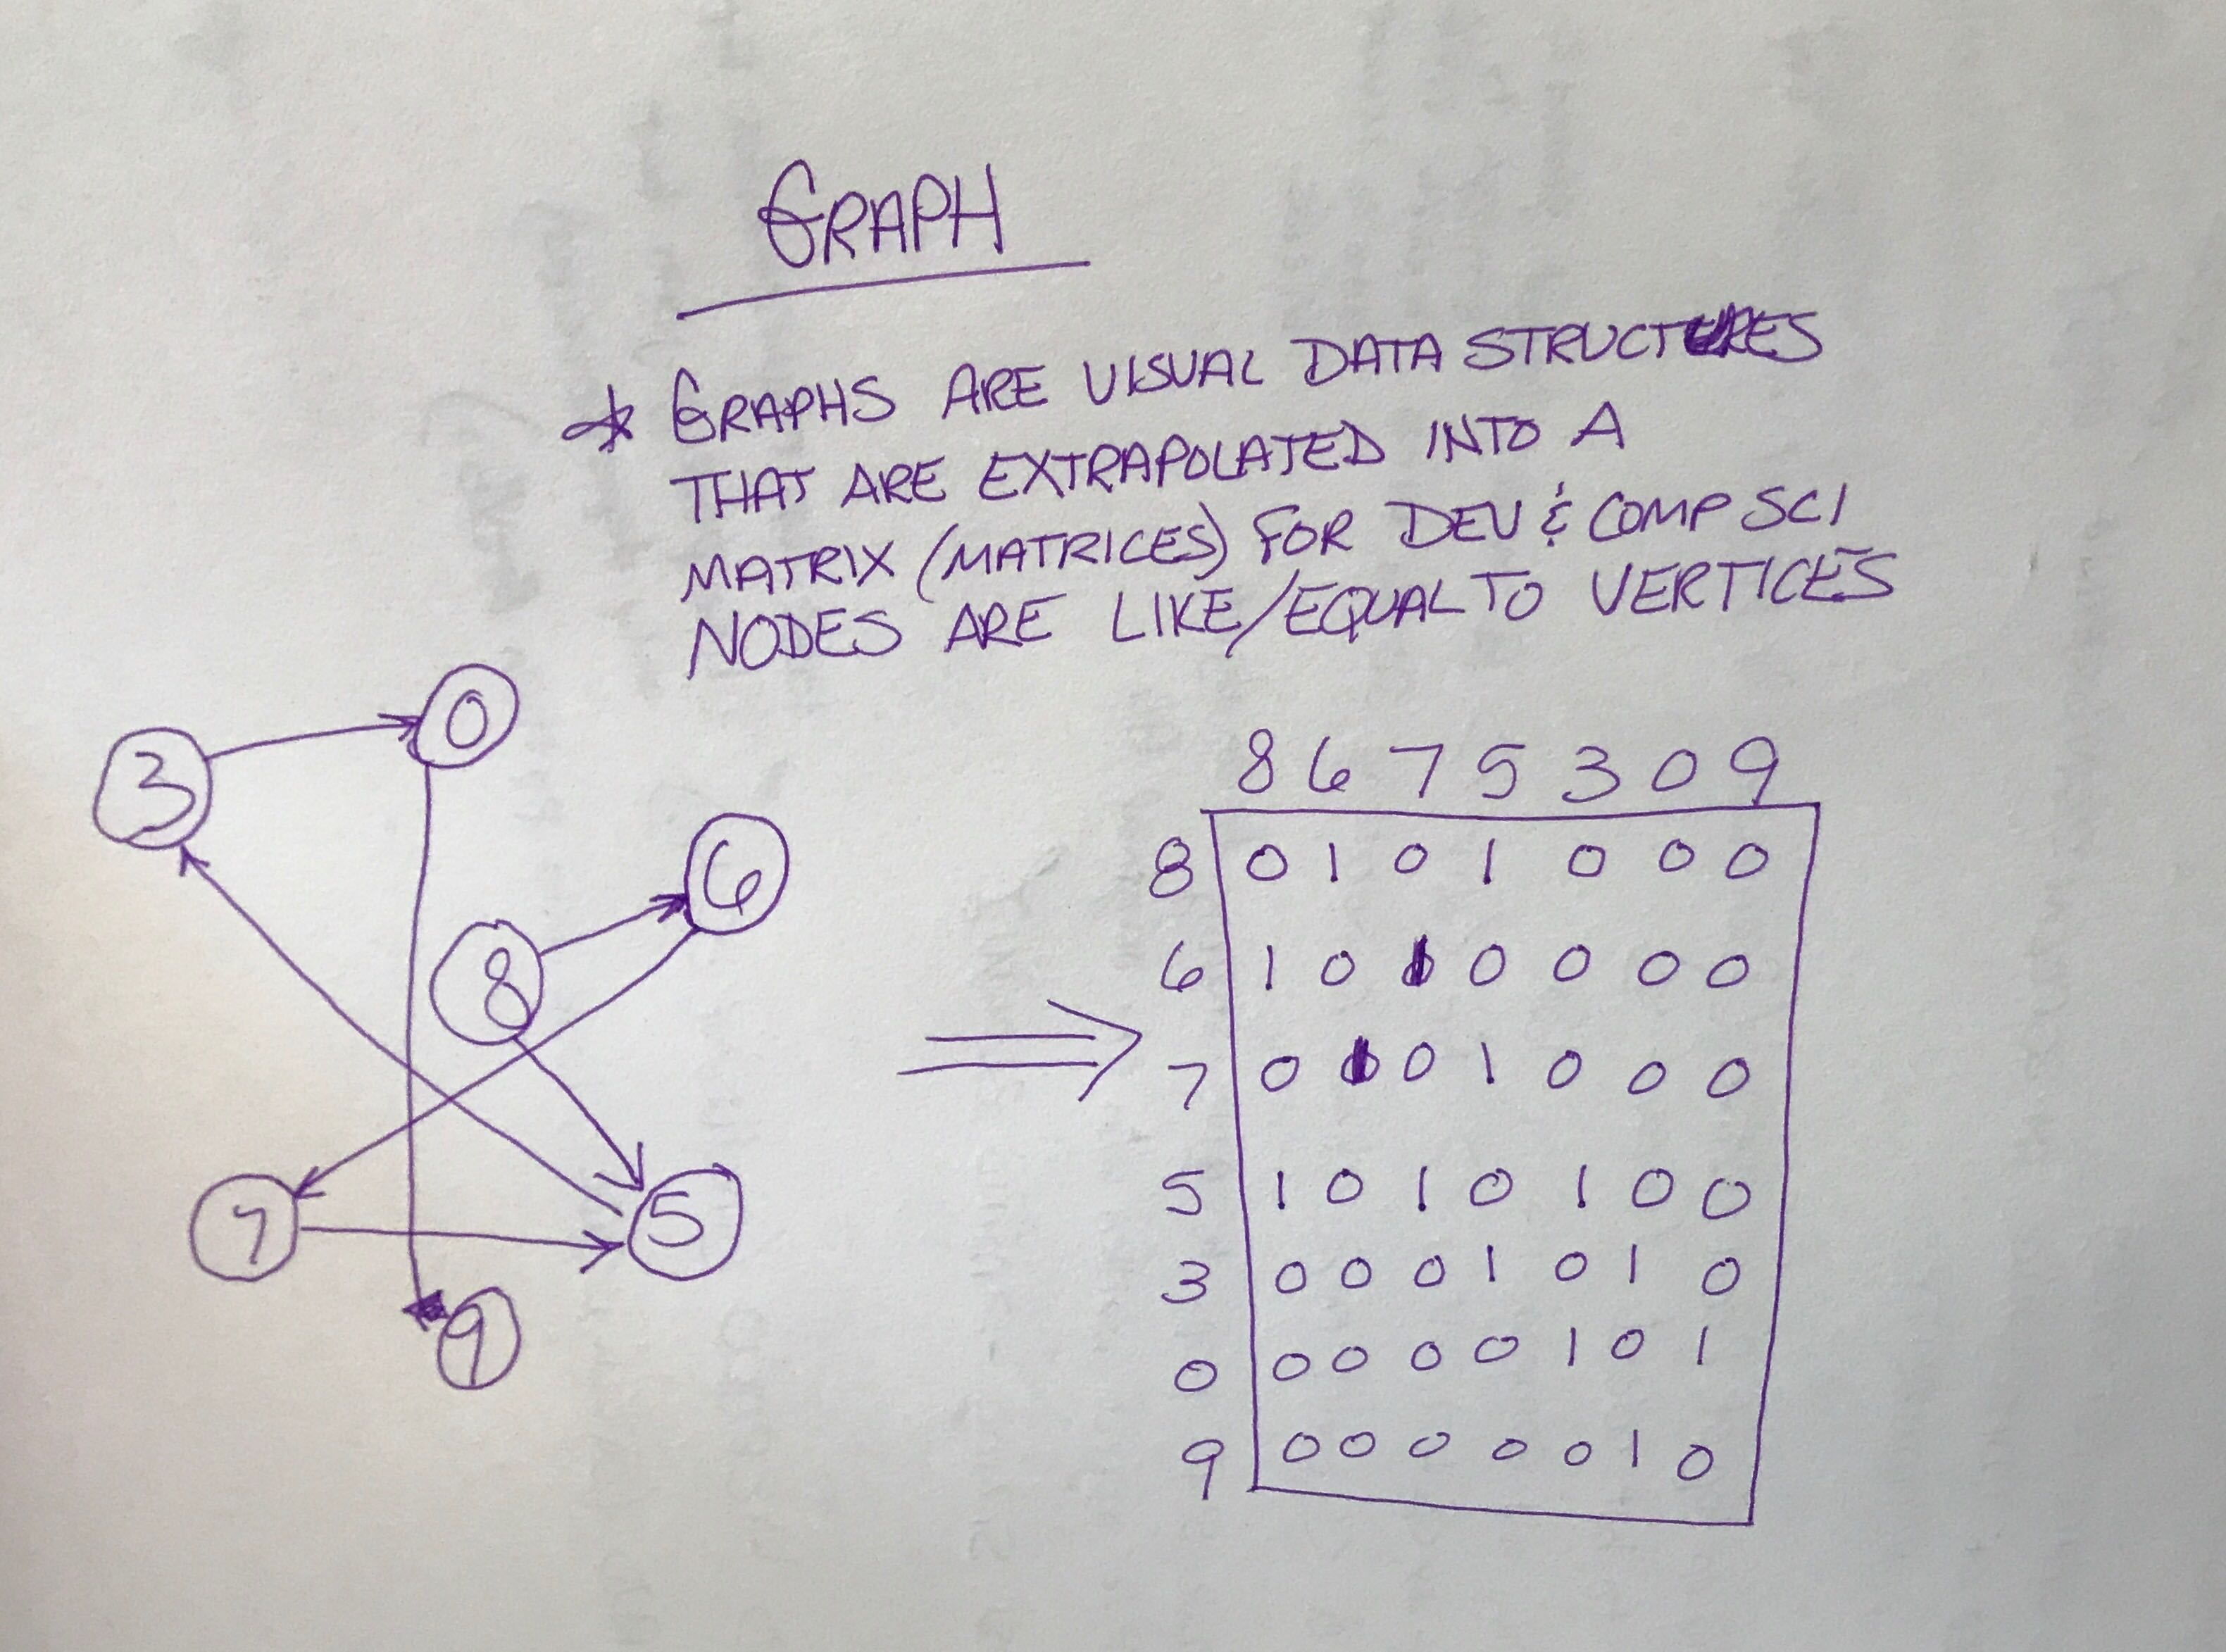 GRAPH
* GRAPHS ARE VISUAL DATA STRUCTURES
THAT ARE EXTRAPOLATED INTO A
MATRIX (MATRICES) FOR DEV & COMP SCI
NODES ARE LIKE/EQUAL TO VERTICES
3
0
6
8
7
5
9
8 6 7 5 3 0 9
8 0 1 0 1 0 0 0
6 1 0 1 0 0 0 0
7 0 1 0 1 0 0 0
5 1 0 1 0 1 0 0
3 0 0 0 1 0 1 0
0 0 0 0 0 1 0 1
9 0 0 0 0 0 1 0